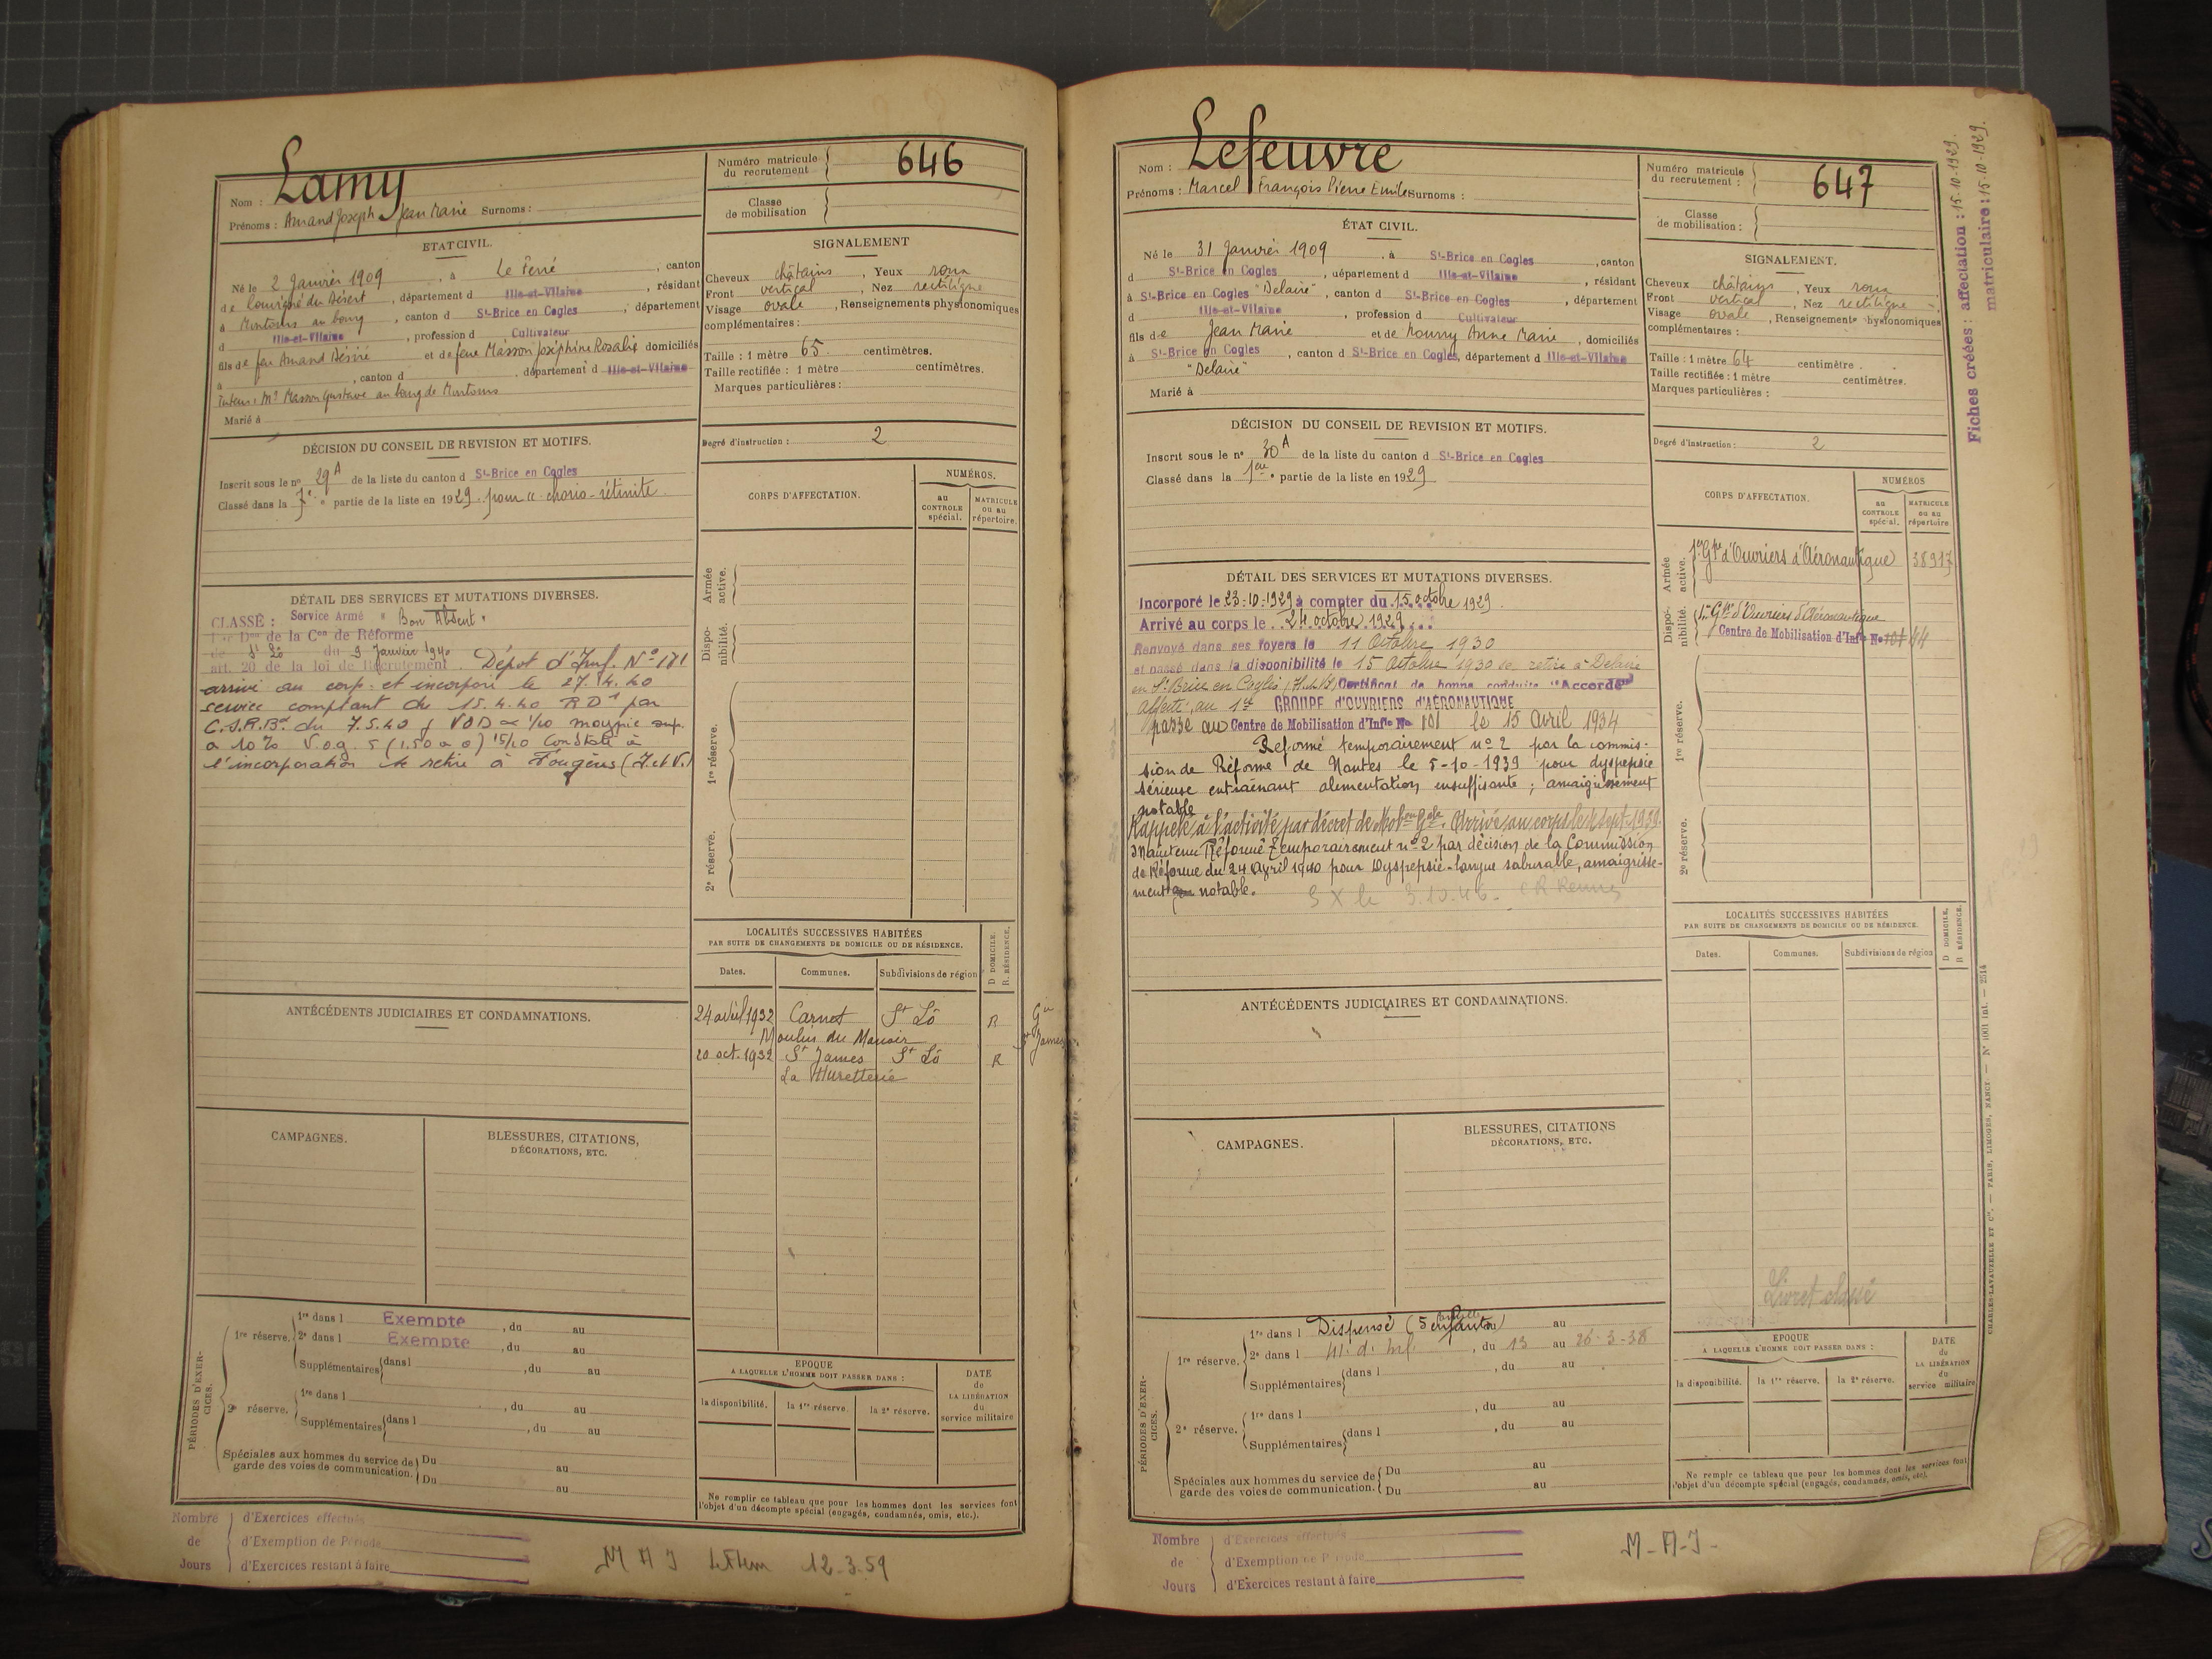 Nom : Lamy
Prénoms : Amand Joseph Jean Marie Surnoms :
Numéro matricule du recrutement 646
Classe de mobilisation
ETAT CIVIL.
Né le 2 Janvier 1909, à Le Ferré, canton
de Louvigné du Désert, département d Ille-et-Vilaine, résidant
à Montours au bourg, canton d St-Brice en Cogles, département
d Ille-et-Vilaine, profession d Cultivateur
fils de feu Amand Désiré et de feue Masson Joséphine Rosalie domiciliés
à , canton d , département d Ille-et-Vilaine
Tuteur : Mr Masson Gustave au bourg de Montours
Marié à
SIGNALEMENT
Cheveux châtains, Yeux roux
Front vertical, Nez rectiligne
Visage ovale, Renseignements physionomiques
complémentaires :
Taille : 1 mètre 65 centimètres.
Taille rectifiée : 1 mètre centimètres.
Marques particulières :
Degré d'instruction : 2
DÉCISION DU CONSEIL DE REVISION ET MOTIFS.
Inscrit sous le no 29 A de la liste du canton d St-Brice en Cogles
Classé dans la 7e partie de la liste en 1929 pour "chorio-rétinite
CORPS D'AFFECTATION.
NUMÉROS.
au CONTROLE spécial.
MATRICULE ou au répertoire.
Armée active.
Disponibilité.
1re réserve.
2e réserve.
DÉTAIL DES SERVICES ET MUTATIONS DIVERSES.
CLASSÉ : Service Armé "Bon Absent"
Don de la Con de Réforme
de St Lô du 9 Janvier 1940
art. 20 de la loi de Recrutement. Dépot d'Inf. No 171
arrivé au corps et incorporé le 27.4.40
service comptant du 15.4.40 RD1 par
C.S.R.Bx du 7.5.40 VOD 1/10 myopie sup.
a 10% V.o.g. 5 (1.50 a 0) 15/10 Constaté à
l'incorporation se retire à Fougères (I.et V.)
LOCALITÉS SUCCESSIVES HABITÉES
PAR SUITE DE CHANGEMENTS DE DOMICILE OU DE RÉSIDENCE.
D DOMICILE. R. RÉSIDENCE.
Dates. Communes. Subdivisions de région
24 avril 1932 Carnet St Lô R
Moulin du Manoir
20 oct. 1932 St James St Lô R
La Muretterie
ANTÉCÉDENTS JUDICIAIRES ET CONDAMNATIONS.
CAMPAGNES.
BLESSURES, CITATIONS,
DÉCORATIONS, ETC.
PÉRIODES D'EXERCICES.
1re réserve. 1re dans l Exempté, du au
2e dans l Exempté, du au
Supplémentaires dans l , du au
2e réserve. 1re dans l , du au
Supplémentaires dans l , du au
Spéciales aux hommes du service de garde des voies de communication. Du au
Du au
EPOQUE
A LAQUELLE L'HOMME DOIT PASSER DANS :
la disponibilité. la 1re réserve. la 2e réserve.
DATE de LA LIBÉRATION du service militaire
Ne remplir ce tableau que pour les hommes dont les services font
l'objet d'un décompte spécial (engagés, condamnés, omis, etc.).
Nombre de Jours
d'Exercices effectués
d'Exemption de Période
d'Exercices restant à faire
M A J 12-3-59
Nom : Lefeuvre
Prénoms : Marcel François Pierre Emile Surnoms :
Numéro matricule du recrutement : 647
Classe de mobilisation :
Fiches créées : affectation : 15-10-1929.
matriculaire : 15-10-1929.
ÉTAT CIVIL.
Né le 31 Janvier 1909, à St-Brice en Cogles, canton
d St-Brice en Cogles, département d Ille-et-Vilaine, résidant
à St-Brice en Cogles "Delaire", canton d St-Brice en Cogles, département
d Ille-et-Vilaine, profession d Cultivateur
fils de Jean Marie et de Nourry Anne Marie, domiciliés
à St-Brice en Cogles, canton d St-Brice en Cogles, département d Ille-et-Vilaine
"Delaire"
Marié à
SIGNALEMENT.
Cheveux châtains, Yeux roux
Front vertical, Nez rectiligne
Visage ovale, Renseignements hysionomiques
complémentaires :
Taille : 1 mètre 64 centimètre.
Taille rectifiée : 1 mètre centimètres.
Marques particulières :
Degré d'instruction : 2
DÉCISION DU CONSEIL DE REVISION ET MOTIFS.
Inscrit sous le no 30 A de la liste du canton d St-Brice en Cogles
Classé dans la 1ère partie de la liste en 1929
CORPS D'AFFECTATION.
NUMÉROS
au CONTROLE spécial.
MATRICULE ou au répertoire
Armée active. 1er Gpe d'Ouvriers d'Aéronautique 38917
Disponibilité. 1er Gpe d'Ouvriers d'Aéronautique
Centre de Mobilisation d'Infie No 101 44
1re réserve.
2e réserve.
DÉTAIL DES SERVICES ET MUTATIONS DIVERSES.
Incorporé le 23-10-1929 à compter du 15 octobre 1929.
Arrivé au corps le 24 octobre 1929
Renvoyé dans ses foyers le 11 Octobre 1930
et passé dans la disponibilité le 15 Octobre 1930 se retire à Delaire
en St Brice en Cogles (I.et V) Certificat de bonne conduite "Accordé"
Affecté au 1er GROUPE D'OUVRIERS D'AÉRONAUTIQUE
passé au Centre de Mobilisation d'Infie No 101 le 15 avril 1934
Réformé temporairement no 2 par la commis-
sion de Réforme de Nantes le 5-10-1939 pour dyspepsie
sérieuse entraînant alimentation insuffisante ; amaigrissement
notable
Rappelé à l'activité par décret de Mobon Gale. Arrivé au corps le 4 Sept. 1939.
Maintenu Réformé Temporairement no 2 par décision de la Commission
de Réforme du 24 Avril 1940 pour Dyspepsie-langue saburrale, amaigrisse-
ment notable.
LOCALITÉS SUCCESSIVES HABITÉES
PAR SUITE DE CHANGEMENTS DE DOMICILE OU DE RÉSIDENCE.
D DOMICILE. R RÉSIDENCE.
Dates. Communes. Subdivisions de région
ANTÉCÉDENTS JUDICIAIRES ET CONDAMNATIONS.
CAMPAGNES.
BLESSURES, CITATIONS
DÉCORATIONS, ETC.
Livret classé
PÉRIODES D'EXERCICES.
1re réserve. 1re dans l Dispensé (5 enfants) au
2e dans l , du 13 au 26-3-38
Supplémentaires dans l , du au
2e réserve. 1re dans l , du au
Supplémentaires dans l , du au
Spéciales aux hommes du service de garde des voies de communication. Du au
Du au
EPOQUE
A LAQUELLE L'HOMME DOIT PASSER DANS :
la disponibilité. la 1re réserve. la 2e réserve.
DATE de LA LIBÉRATION du service militaire
Ne remplr ce tableau que pour les hommes dont les services font
l'objet d'un décompte spécial (engagés, condamnés, omis, etc).
CHARLES-LAVAUZELLE ET Cie. — PARIS, LIMOGES, NANCY — No 1001 int. — 2514
Nombre de Jours
d'Exercices effectués
d'Exemption de Période
d'Exercices restant à faire
M-A-J-